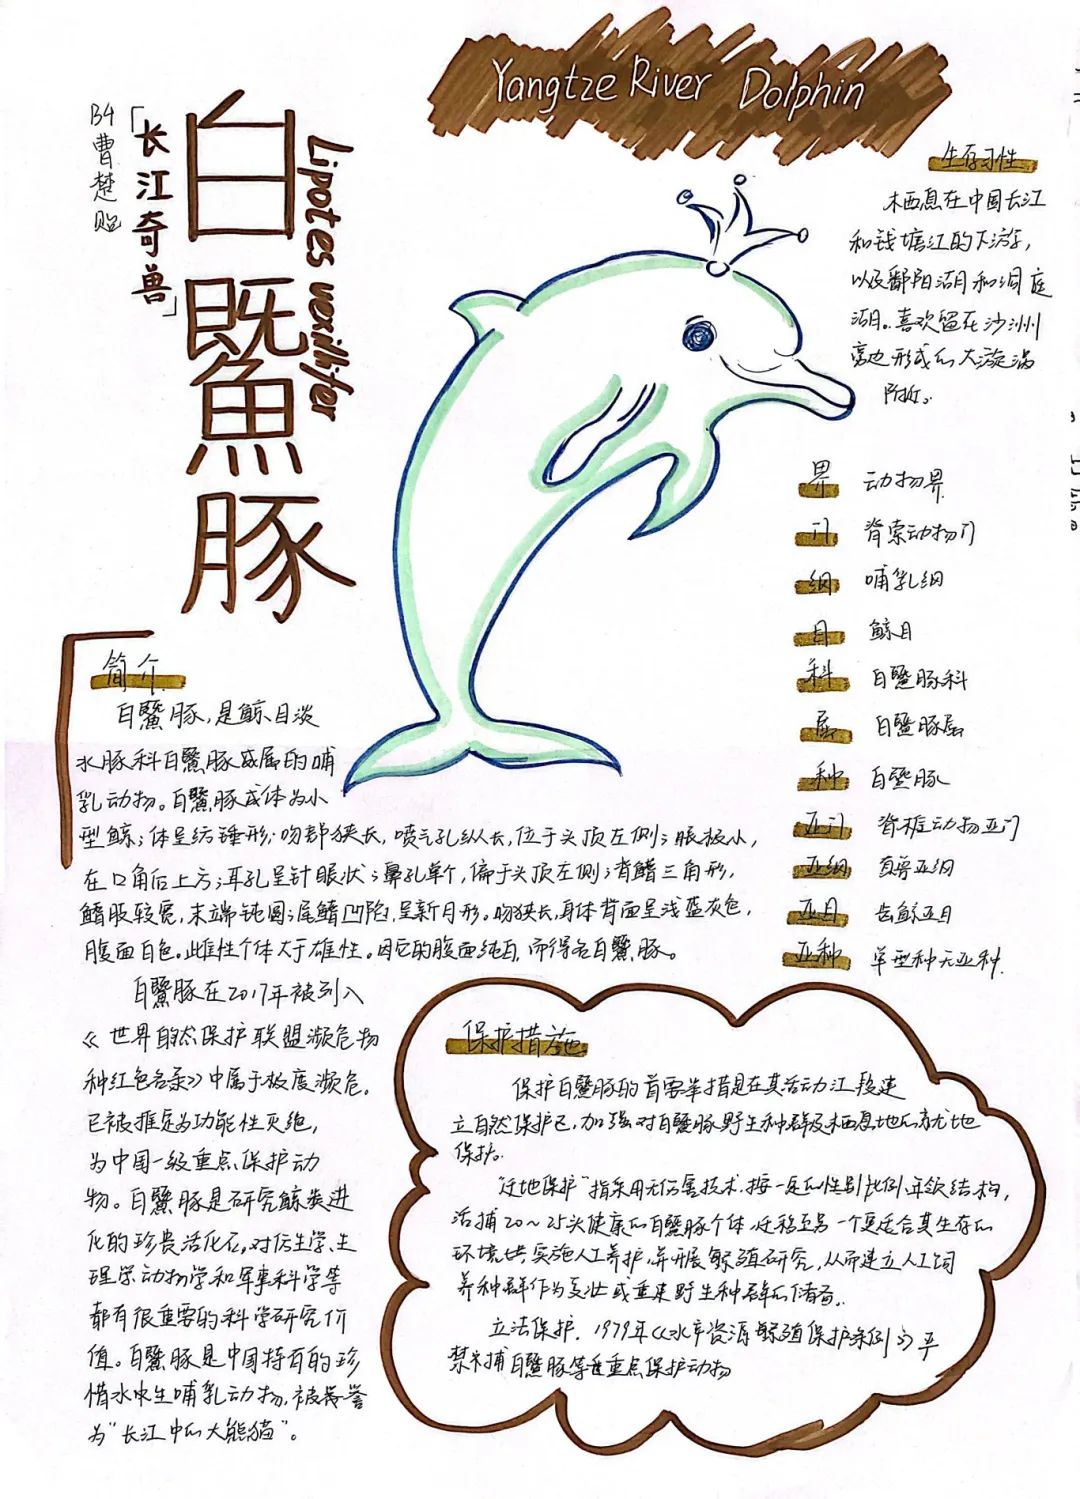 Yangtze River Dolphin
B4曹楚贻
「长江奇兽」
白鱀豚
Lipotes vexillifer
生存习性
栖息在中国长江
和钱塘江的下游,
以及鄱阳湖和洞庭
湖。喜欢留在沙洲
旁边形成的大漩涡
附近。
界 动物界
门 脊索动物门
纲 哺乳纲
目 鲸目
科 白鱀豚科
属 白鱀豚属
种 白鱀豚
亚门 脊椎动物亚门
亚纲 真兽亚纲
亚目 齿鲸亚目
亚种 单型种无亚种.
简介
白鱀豚,是鲸目淡
水豚科白鱀豚属的哺
乳动物。白鱀豚成体为小
型鲸;体呈纺锤形;吻部狭长,喷气孔纵长,位于头顶左侧;眼极小,
在口角后上方;耳孔呈针眼状;鼻孔单个,偏于头顶左侧;背鳍三角形,
鳍肢较宽,末端钝圆;尾鳍凹陷,呈新月形。吻狭长,身体背面呈浅蓝灰色,
腹面白色。雌性个体大于雄性。因它的腹面纯白,而得名白鱀豚。
白鱀豚在2017年被列入
《世界自然保护联盟濒危物
种红色名录》中属于极度濒危.
已被推定为功能性灭绝,
为中国一级重点保护动
物。白鱀豚是研究鲸类进
化的珍贵活化石,对仿生学、生
理学、动物学和军事科学等
都有很重要的科学研究价
值。白鱀豚是中国特有的珍
惜水中生哺乳动物,被誉
为“长江中的大熊猫”。
保护措施
保护白鱀豚的首要举措是在其活动江段建
立自然保护区,加强对白鱀豚野生种群及栖息地的就地
保护.
“迁地保护”指采用无伤害技术.按一定的性别比例、年龄结构,
活捕20~25头健康的白鱀豚个体,迁移至另一个更适合其生存的
环境中,实施人工养护,并开展繁殖研究,从而建立人工饲
养种群作为复壮或重建野生种群的储备.
立法保护.1979年《水产资源繁殖保护条例》严
禁米捕白鱀豚等重点保护动物